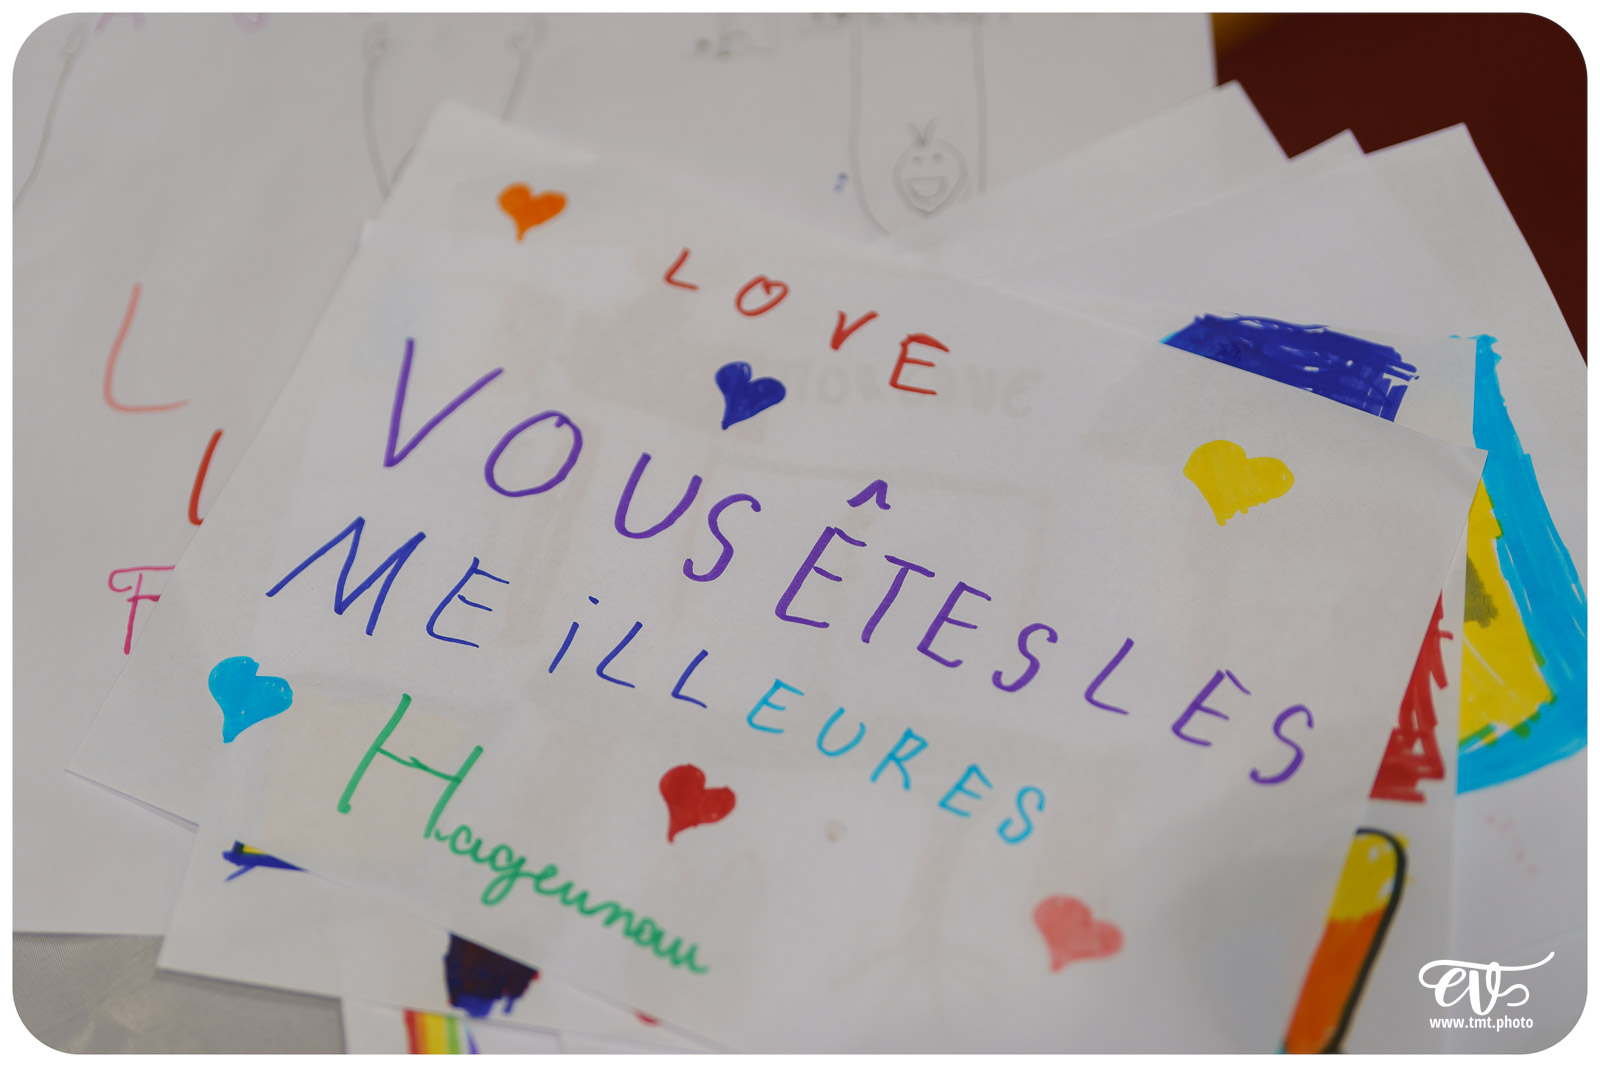 LOVE
VOUS ÊTES LES
MEiLLEURES
Hageunau
L
F
ev
www.tmt.photo